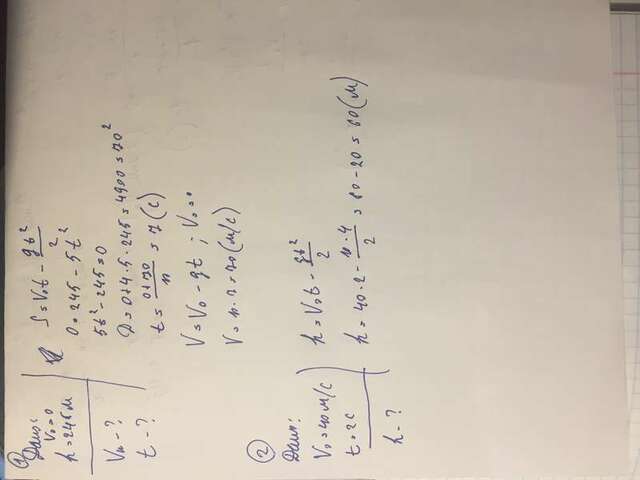 1) Дано:
V₀ = 0
h = 245 м
Vк - ?
t - ?
S = V₀t - gt²/2
0 = 245 - 5t²
5t² - 245 = 0
D = 0 + 4·5·245 = 4900 = 70²
t = (0+70)/10 = 7 (с)
V = V₀ - gt ; V₀ = 0
V = 10·7 = 70 (м/с)
2) Дано:
V₀ = 40 м/с
t = 2с
h - ?
h = V₀t - gt²/2
h = 40·2 - 10·4/2 = 80 - 20 = 60 (м)